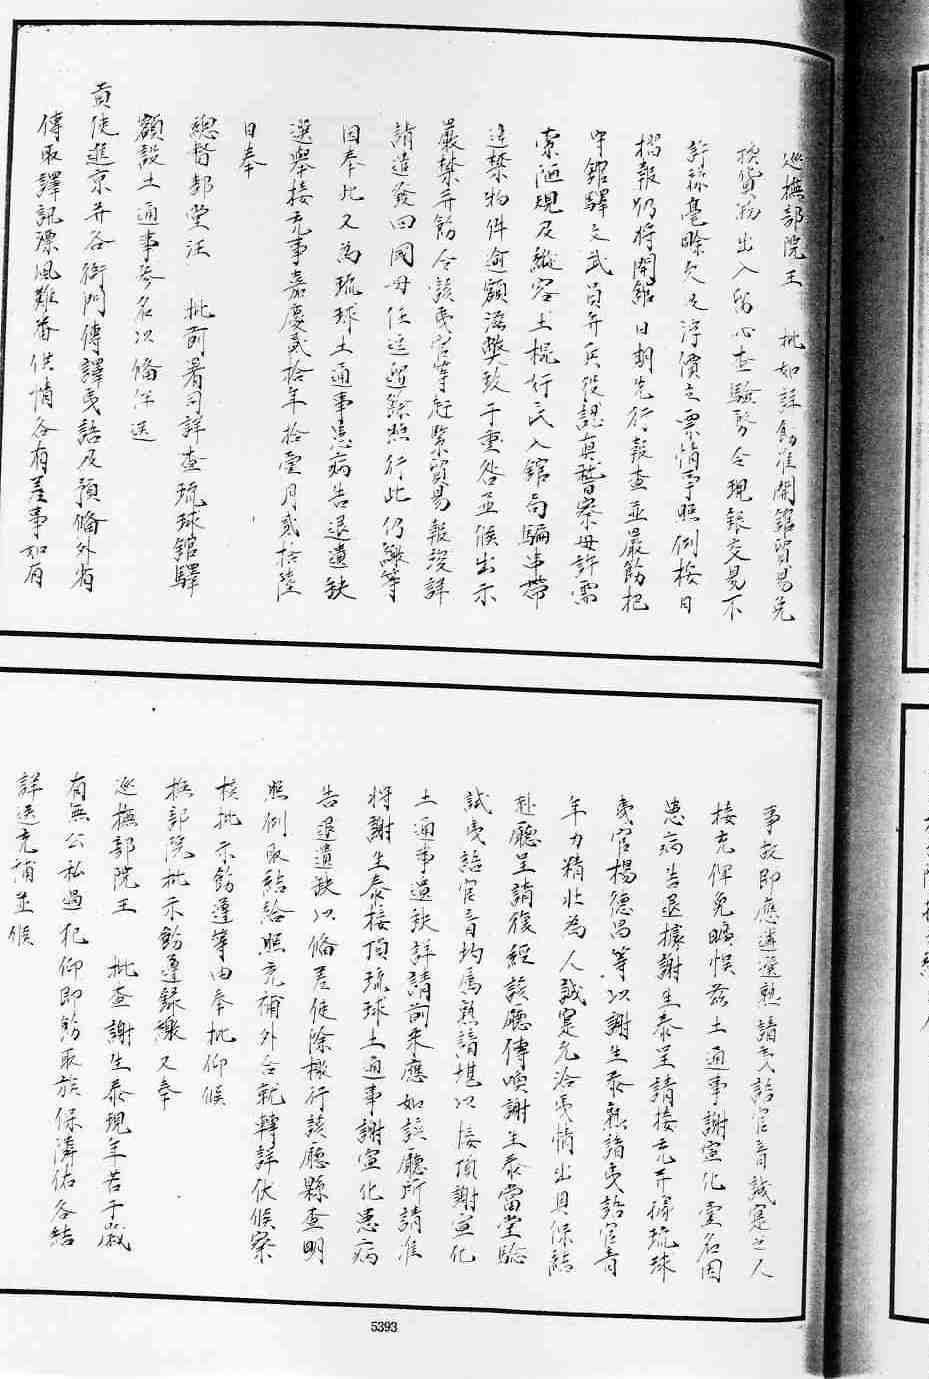 巡撫部院王　批如詳飭准開舘貿易兌
換貨物出入留心查驗緊令現銀交易不
許祿毫賒欠及浮價之累情事照例按日
摺報仍將開舘日期先行報查並嚴飭把
守舘驛文武員弁兵役認真稽察毋許需
索陋規及縱容土棍奸民入舘局騙串帶
違禁物件逾額滋弊致于重咎並候出示
嚴禁并飭令該夷官等赶緊貿易報竣詳
請遣發回國毋任逗遛餘照行此仍繳等
因奉此又為琉球土通事患病告退遺缺
選舉接充事嘉慶貳拾年拾壹月貳拾陸
日奉
總督部堂汪　批前署司詳查琉球舘驛
額設土通事參名以備伴送
貢使進京并各衙門傳譯夷語及預備外省
傳取譯訊漂風難番供情各有差事如有
事故即應遴選熟諳夷語官音誠寔之人
接充俾免曠悞茲土通事謝宣化壹名因
患病告退據謝生泰呈請接充并據琉球
夷官楊德昌等以謝生泰熟諳夷語官音
年力精壯為人誠寔允洽夷情出具保結
赴廳呈請復經該廳傳喚謝生泰當堂驗
試夷語官音均為熟諳堪以接頂謝宣化
土通事遺缺詳請前來應如該廳所請准
將謝生泰接頂琉球土通事謝宣化患病
告退遺缺以備差使除檄行該廳縣查明
照例取結給照充補外合就轉詳伏候察
核批示飭遵等由奉批仰候
撫部院批示飭遵錄繳又奉
巡撫部院王　批查謝生泰現年若干歲
有無公私過犯仰即飭取族保隣佑各結
詳送充補並候
5393